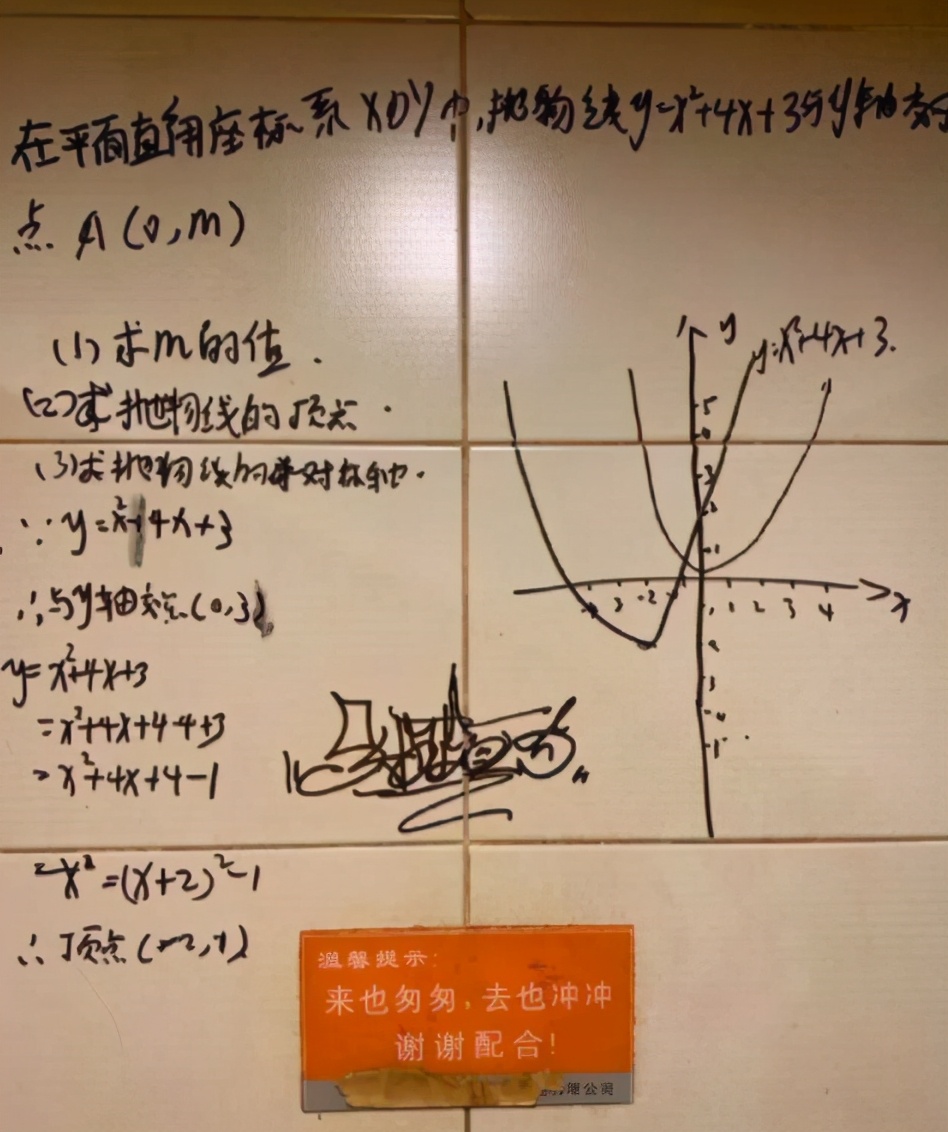 在平面直角座标系XOY中,抛物线y=x²+4x+3与y轴交于
点A(0,m)
(1)求m的值.
(2)求抛物线的顶点.
(3)求抛物线的对称轴.
∵y=x²+4x+3
∴与y轴交点(0,3)
y=x²+4x+3
=x²+4x+4-4+3
=x²+4x+4-1
=(x+2)²-1
∴顶点(-2,-1)
y
y=x²+4x+3.
5
4
3
2
1
3 -2
1 2 3 4
x
温馨提示:
来也匆匆,去也冲冲
谢谢配合!